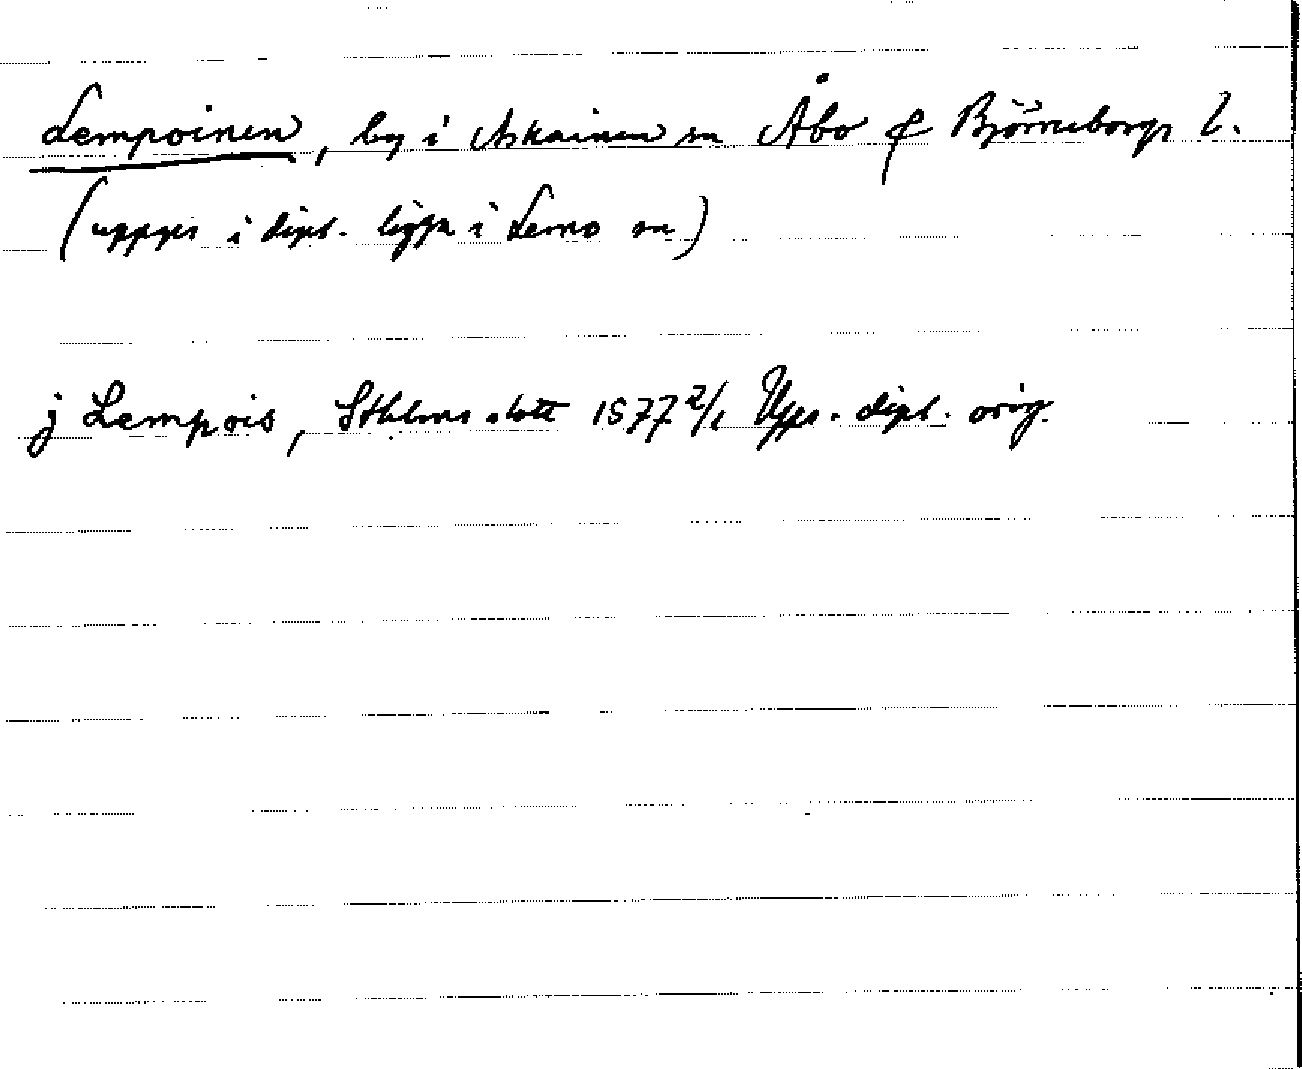 Lempoinen, by i Askainen sn Åbo & Björneborgs l.
(uppges i dipl. ligga i Lemo sn)
j Lempois, Sthlms slott 1577 2/1 Upps. dipl. orig.